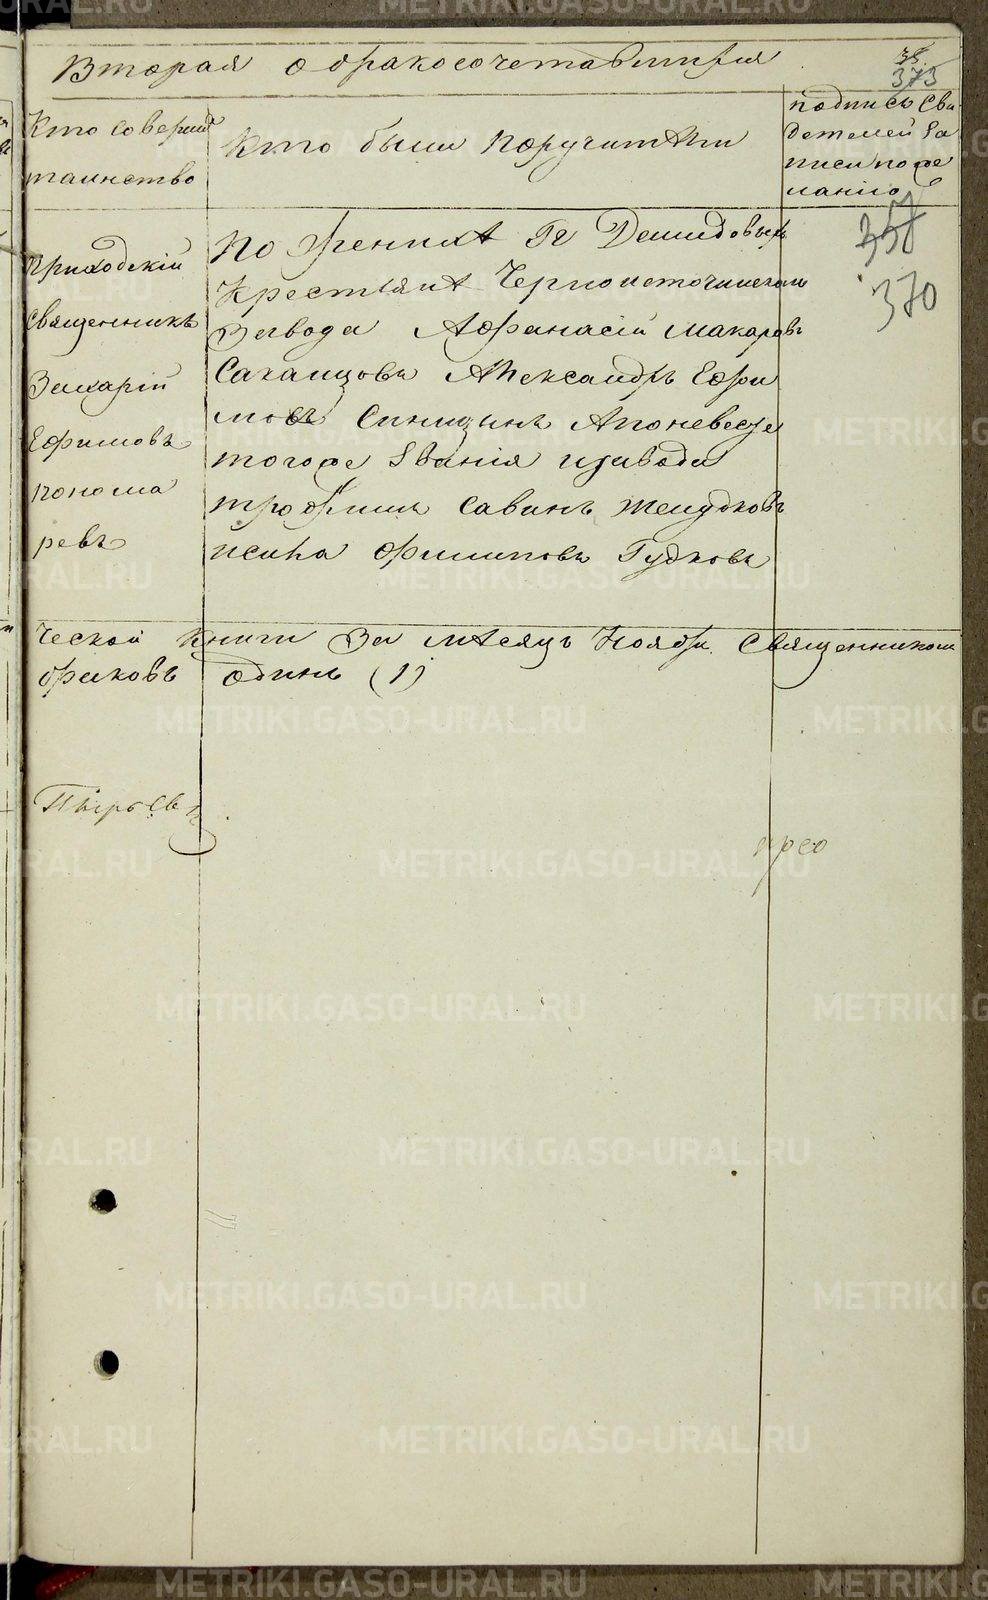 Вторая о бракосочетавшихся
373
Кто совершилъ
таинство
Кто были поручители
подпись сви
детелей за
писи по же
ланiю
357
370
Приходскiй
священникъ
Захарiй
Ефимовъ
понома
ревъ
По женихѣ Гг Демидовыхъ
Крестьянѣ Черноисточинскаго
Завода Афанасiй Макаровъ
Саканцовъ Александръ Ефи
мовъ Синицынъ А по невесте
того же звания и завода
трофимъ Савинъ желудковъ
исика Филиповъ Гудковъ
ческой Книги За мѣсяцъ Ноябрь Священникомъ
браковъ одинъ (1)
Пырьевъ
METRIKI.GASO-URAL.RU